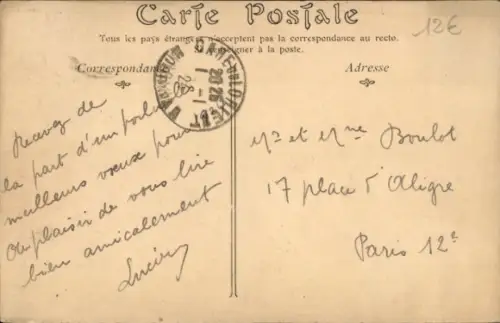 Carte Postale
12€
Tous les pays étrangers n'acceptent pas la correspondance au recto.
Se renseigner à la poste.
Correspondance
Adresse
GARE DE LORIENT
20 25
Recevez de
la part d'un poilu
meilleurs vœux pour
Au plaisir de vous lire
bien amicalement
Lucien
Mr et Mme Boulot
17 place d'Aligre
Paris 12e